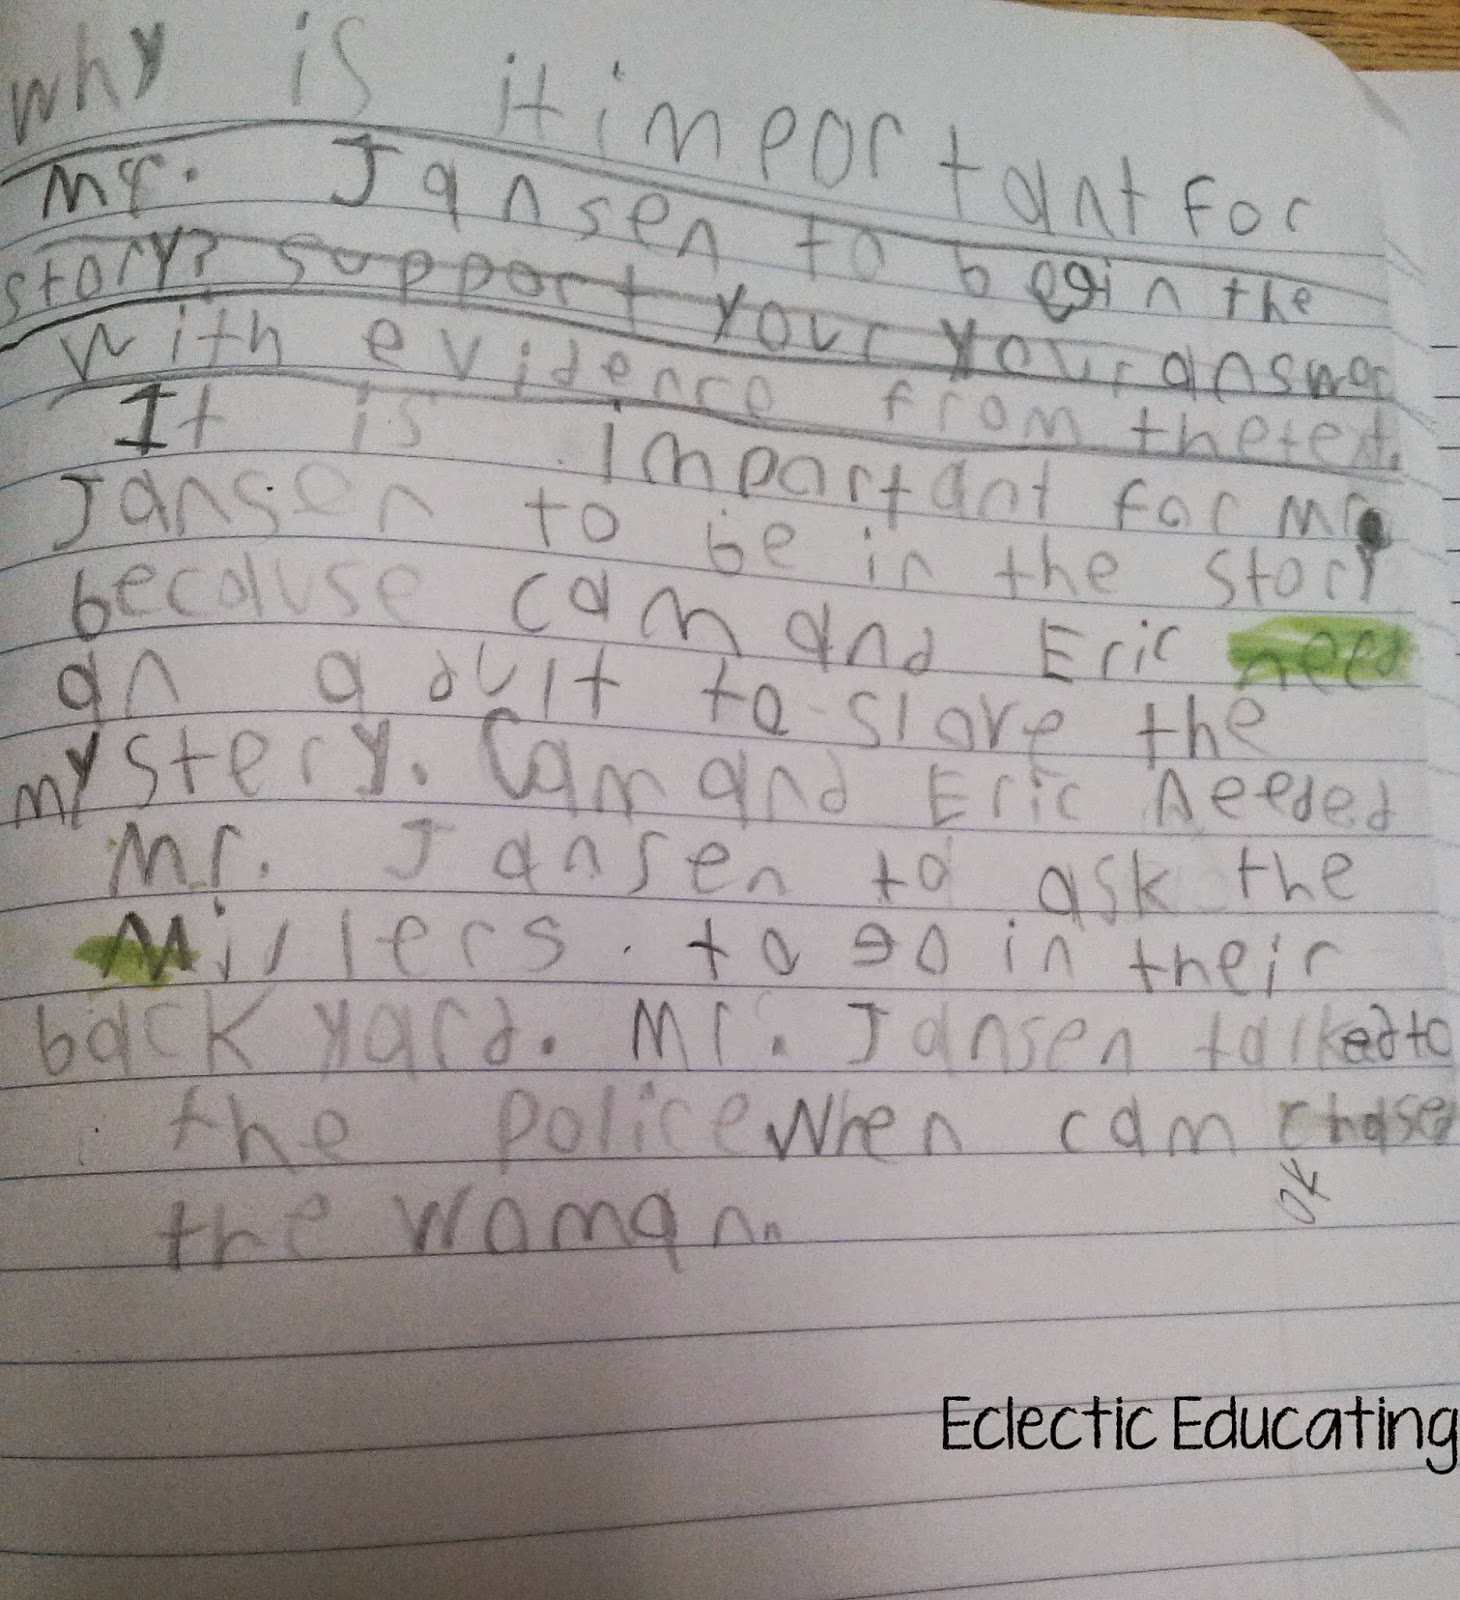 why is it important for
Mr. Jansen to begin the
story? Support your your answer
with evidence from the text.
It is important for Mr.
Jansen to be in the story
because cam and Eric need
an adult to slove the
mystery. Cam and Eric Needed
Mr. Jansen to ask the
Millers. to go in their
back yard. Mr. Jansen talked to
the police When cam chased
ok
the woman.
Eclectic Educating